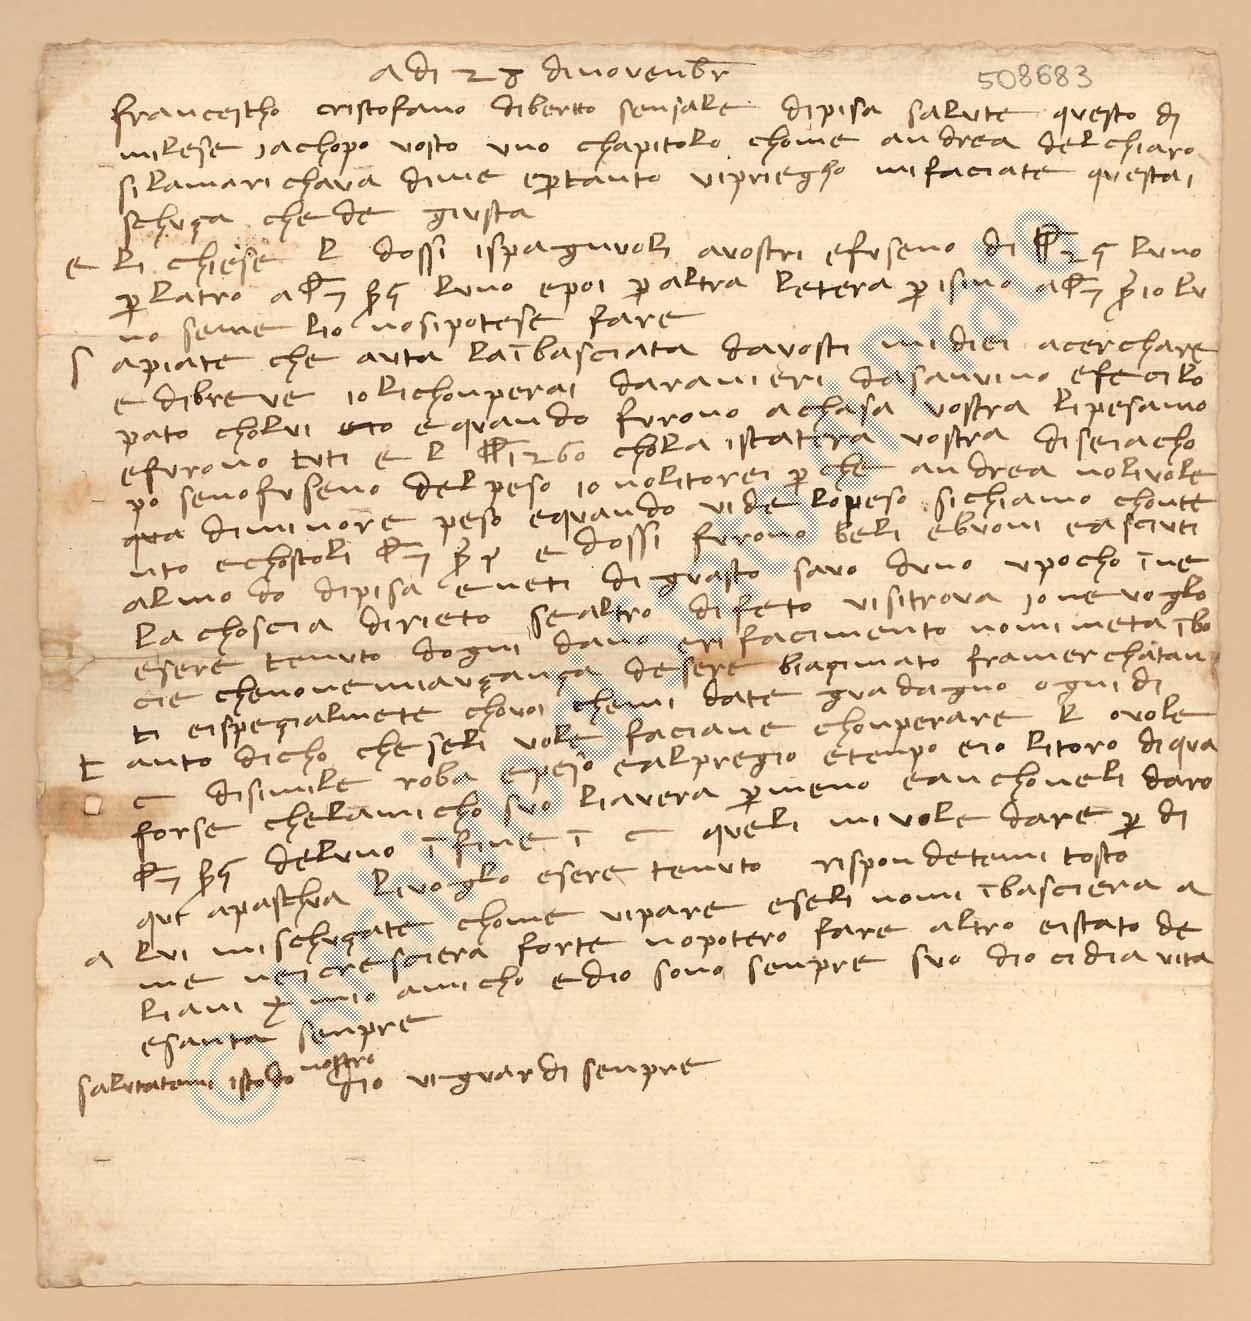 adi 28 dinovenbr
508683
francescho cristofano diberto sensale dipisa salute questo di
milese jachopo vosto uno chapitolo chome andrea delchiaro
silamarichava dime epertanto vipriegho mifaciate questa
schuça chede giusta
e li chiese L dossi ispagnuoli avostri efuseno di 25 luno
per latro a luno epoi per altra letera per isino a 10 lu
no seme lio nosipotese fare
s apiate che auta la inbasciata davosti midiei acerchare
edibreve iolichonperai daranieri dasanvino efecilo
pato cholui e quando furono achasa vostra lipesamo
efurono tuti e L 1260 chola istatera vostra disciacho
po senofuseno delpeso io nolitorei per che andrea nolivole
qua diminore peso equando vide lopeso sichiamo chonte
nto echostoli e dossi furono beli ebuoni easciuti
almodo dipisa eneti diguasto savo duno upocho ine
lachoscia dirieto sealtro difeto visitrova jo nevoglo
esere tenuto dogni dano erifacimento nomimeta inbo
cie chenonemiauçança desere biasimato framerchatan
ti eispeçialmete chovoi chemi date guadagno ogni di
t anto dicho cheseli vole faciane chonperare L ovole
c disimile roba epeso ealpregio etenpo eio litoro diqua
forse chelamicho suo liavera permeno eanchoneli daro
deluno infine in c queli mivole dare per di
qui apaschua livoglo esere tenuto rispondetemi tosto
a lui mischuçate chome vipare eseli nomi inbasciera a
me neicresciera forte nopotero fare altro eistato de
liani mio amicho edio sono senpre suo dio cidia vita
esanta senpre
salutatemi istoldo nostro dio viguardi senpre